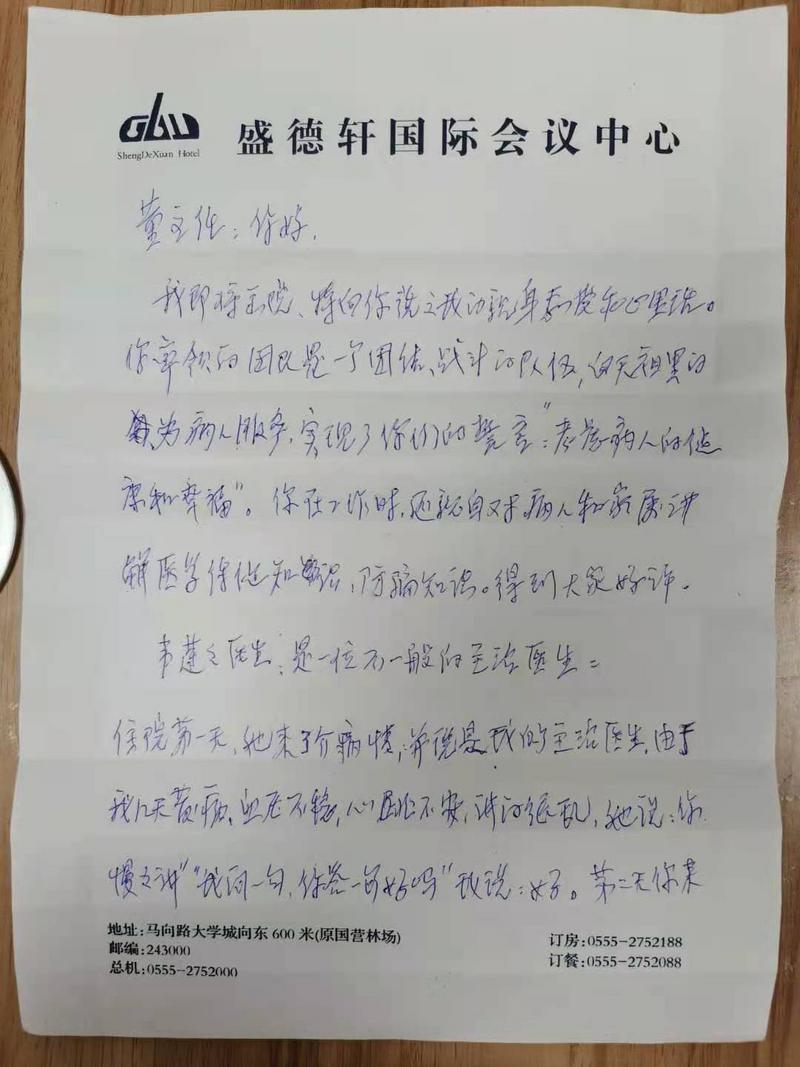 GBU
ShengDeXuan Hotel
盛德轩国际会议中心
董主任:你好,
我即将出院、将向你说之我的亲身感受和心里话。
你率领的团队是一个团结、战斗的队伍,白天夜里的
为病人服务,实现了你们的誓言:“老为病人的健
康和幸福”。你在工作时,还亲自对病人和家属讲
解医学保健知识,防骗知识。得到大家好评。
韦莲之医生:是一位不一般的主治医生:
住院第一天,她来了介病情,并说是我的主治医生,由于
我几天发病,血压不稳,心里不安,讲的很乱,她说:你
慢之讲“我问一句,你答一句好吗”我说:好。第二天你来
地址:马向路大学城向东600米(原国营林场)
邮编:243000
总机:0555-2752000
订房:0555-2752188
订餐:0555-2752088